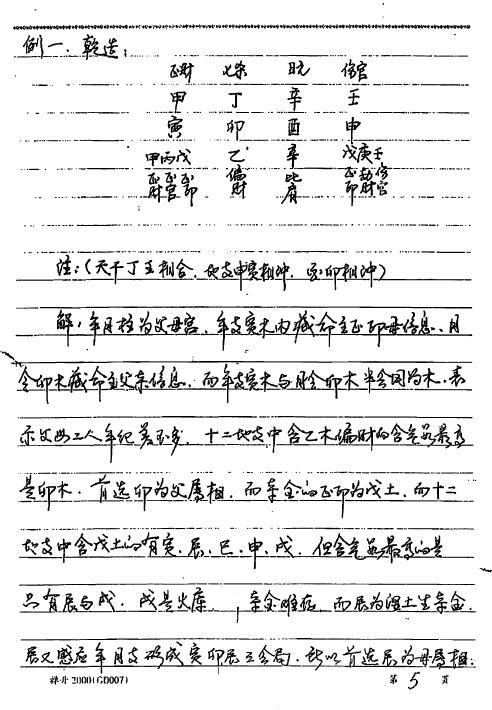 例一、乾造：
正财 七杀 日元 伤官
甲 丁 辛 壬
寅 卯 酉 申
甲丙戊 乙 辛 戊庚壬
正正正 偏 比 正劫伤
财官印 财 肩 印财官
注：（天干丁壬相合，地支申寅相冲，酉卯相冲）
解：年月柱为父母宫，年支寅木内藏命主正印母信息，月
令卯木藏命主父亲信息，而年支寅木与月令卯木半会同为木，表
示父母二人年纪差不多，十二地支中含乙木偏财的含气数最高
是卯木，首选卯为父属相，而辛金的正印为戊土，而十二
地支中含戊土的有寅、辰、巳、申、戌，但含气数最高的是
只有辰与戌，戌是火库，辛金难存，而辰为湿土生辛金，
辰又感应年月支形成寅卯辰三会局，所以首选辰为母属相；
禅升2000(GD007) 第 5 页